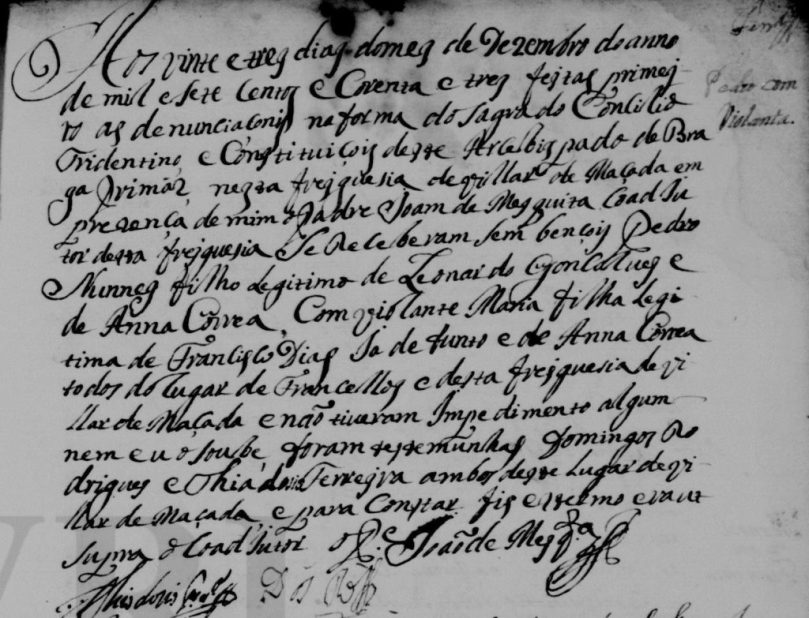 Aos vinte e tres dias do mes de Dezembro do anno
de mil e sete Centos e Corenta e tres feitas primej
ro as denunciaçonis na forma do Sagrado Concilio
Tridentino e Constituiçois deste Arcebispado de Bra
ga Primás nesta frejguesia de villar de Maçada em
prezença de mim o Padre Joam de Mesquita Coadju
tor desta frejguesia Se Receberam sem bençois Pedro
Nunnes filho Legitimo de Leonardo Gonçalves e
de Anna Correa, Com violante Maria filha Legi
tima de Francisco Dias já defunto e de Anna Correa
todos do lugar de Francellos e desta frejguesia de vi
llar de Maçada e não tiveram Impedimento algum
nem eu o soube foram testemunhas Domingos Ro
drigues e Ferrejra ambos deste Lugar de vi
llar de Maçada, e para Constar fis este termo era ut
supra o Coadjutor o P.e João de Mesq.ta
Pedro com
Violanta.